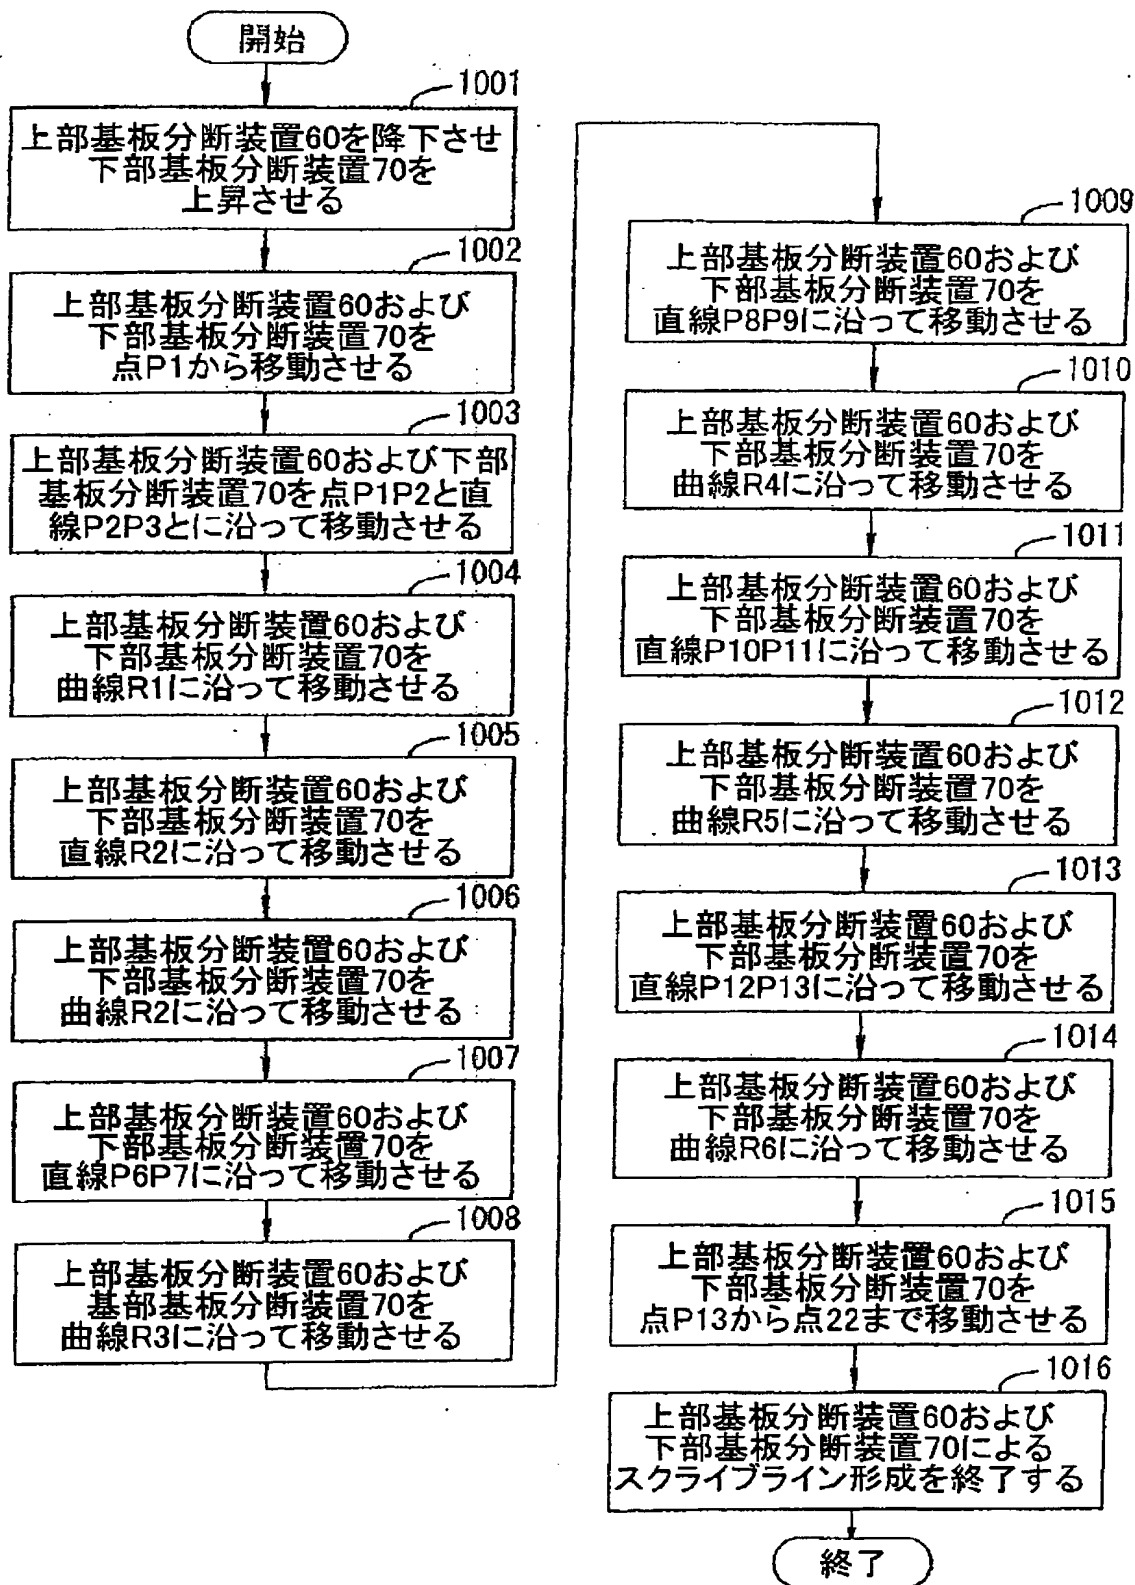 開始
1001
上部基板分断装置60を降下させ
下部基板分断装置70を
上昇させる
1002
上部基板分断装置60および
下部基板分断装置70を
点P1から移動させる
1003
上部基板分断装置60および下部
基板分断装置70を点P1P2と直
線P2P3とに沿って移動させる
1004
上部基板分断装置60および
下部基板分断装置70を
曲線R1に沿って移動させる
1005
上部基板分断装置60および
下部基板分断装置70を
直線R2に沿って移動させる
1006
上部基板分断装置60および
下部基板分断装置70を
曲線R2に沿って移動させる
1007
上部基板分断装置60および
下部基板分断装置70を
直線P6P7に沿って移動させる
1008
上部基板分断装置60および
基部基板分断装置70を
曲線R3に沿って移動させる
1009
上部基板分断装置60および
下部基板分断装置70を
直線P8P9に沿って移動させる
1010
上部基板分断装置60および
下部基板分断装置70を
曲線R4に沿って移動させる
1011
上部基板分断装置60および
下部基板分断装置70を
直線P10P11に沿って移動させる
1012
上部基板分断装置60および
下部基板分断装置70を
曲線R5に沿って移動させる
1013
上部基板分断装置60および
下部基板分断装置70を
直線P12P13に沿って移動させる
1014
上部基板分断装置60および
下部基板分断装置70を
曲線R6に沿って移動させる
1015
上部基板分断装置60および
下部基板分断装置70を
点P13から点22まで移動させる
1016
上部基板分断装置60および
下部基板分断装置70による
スクライブライン形成を終了する
終了